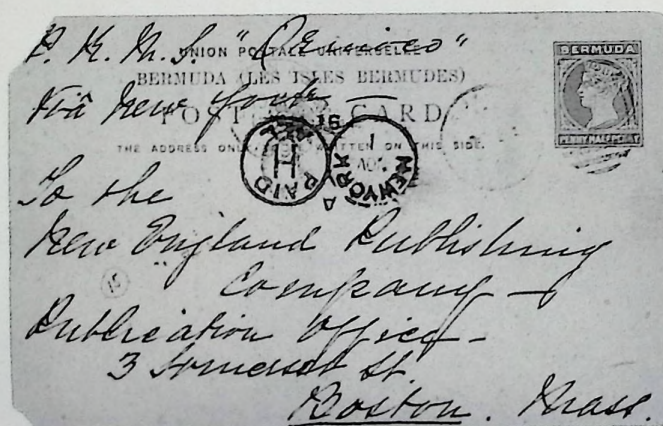 P. R. M. S. "Orinoco"
UNION POSTALE UNIVERSELLE
BERMUDA (LES ISLES BERMUDES)
Viâ New York —
POST CARD
THE ADDRESS ONLY TO BE WRITTEN ON THIS SIDE.
BERMUDA
PENNY HALFPENNY
PAID
H
ALL
NEW YORK
NOV
1
91
A
To the
New England Publishing
Company —
15
Publication Office —
3 Somerset St.
Boston. Mass.